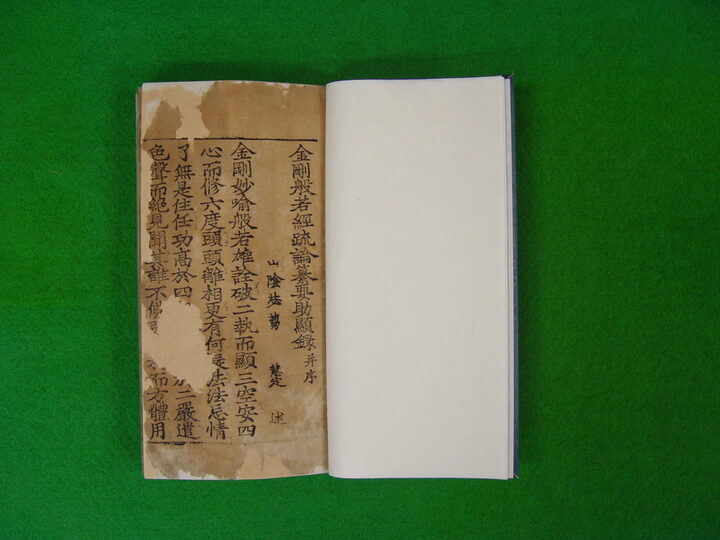 金剛般若經疏論纂要助顯錄并序
山陰 述
金剛妙喻般若雄詮破二執而顯三空安四
心而修六度頭頭離相更有何是法法忘情
了無是住任功高於四 二嚴遣
色聲而絕見聞 誰不 而方體用